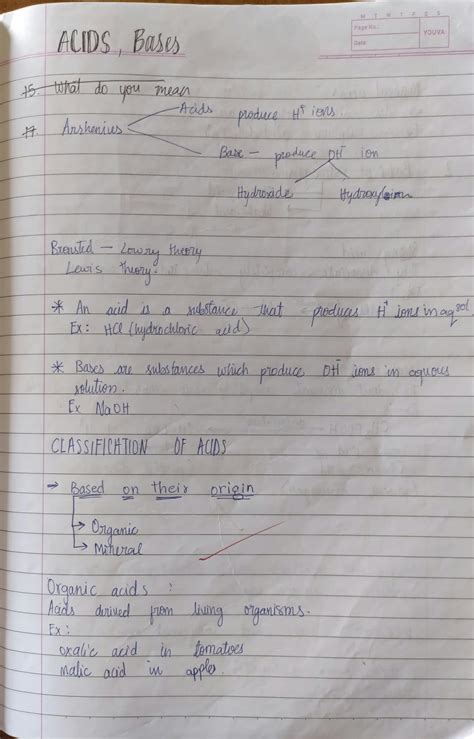 M T W T F S S
Page No.:
Date:
YOUVA
ACIDS, Bases
15. What do you mean
17. Arshenius
Acids produce H⁺ ions.
Base — produce OH⁻ ion
Hydroxide Hydroxyl ion
Bronsted — Lowry theory
Lewis theory.
* An acid is a substance that produces H⁺ ions in aq sol
Ex: HCl (hydrochloric acid)
* Bases are substances which produce OH⁻ ions in aquous
solution.
Ex NaOH
CLASSIFICATION OF ACIDS
→ Based on their origin
→ Organic
→ Mineral
Organic acids :
Acids derived from living organisms.
Ex:
oxalic acid in tomatoes
Malic acid in apples